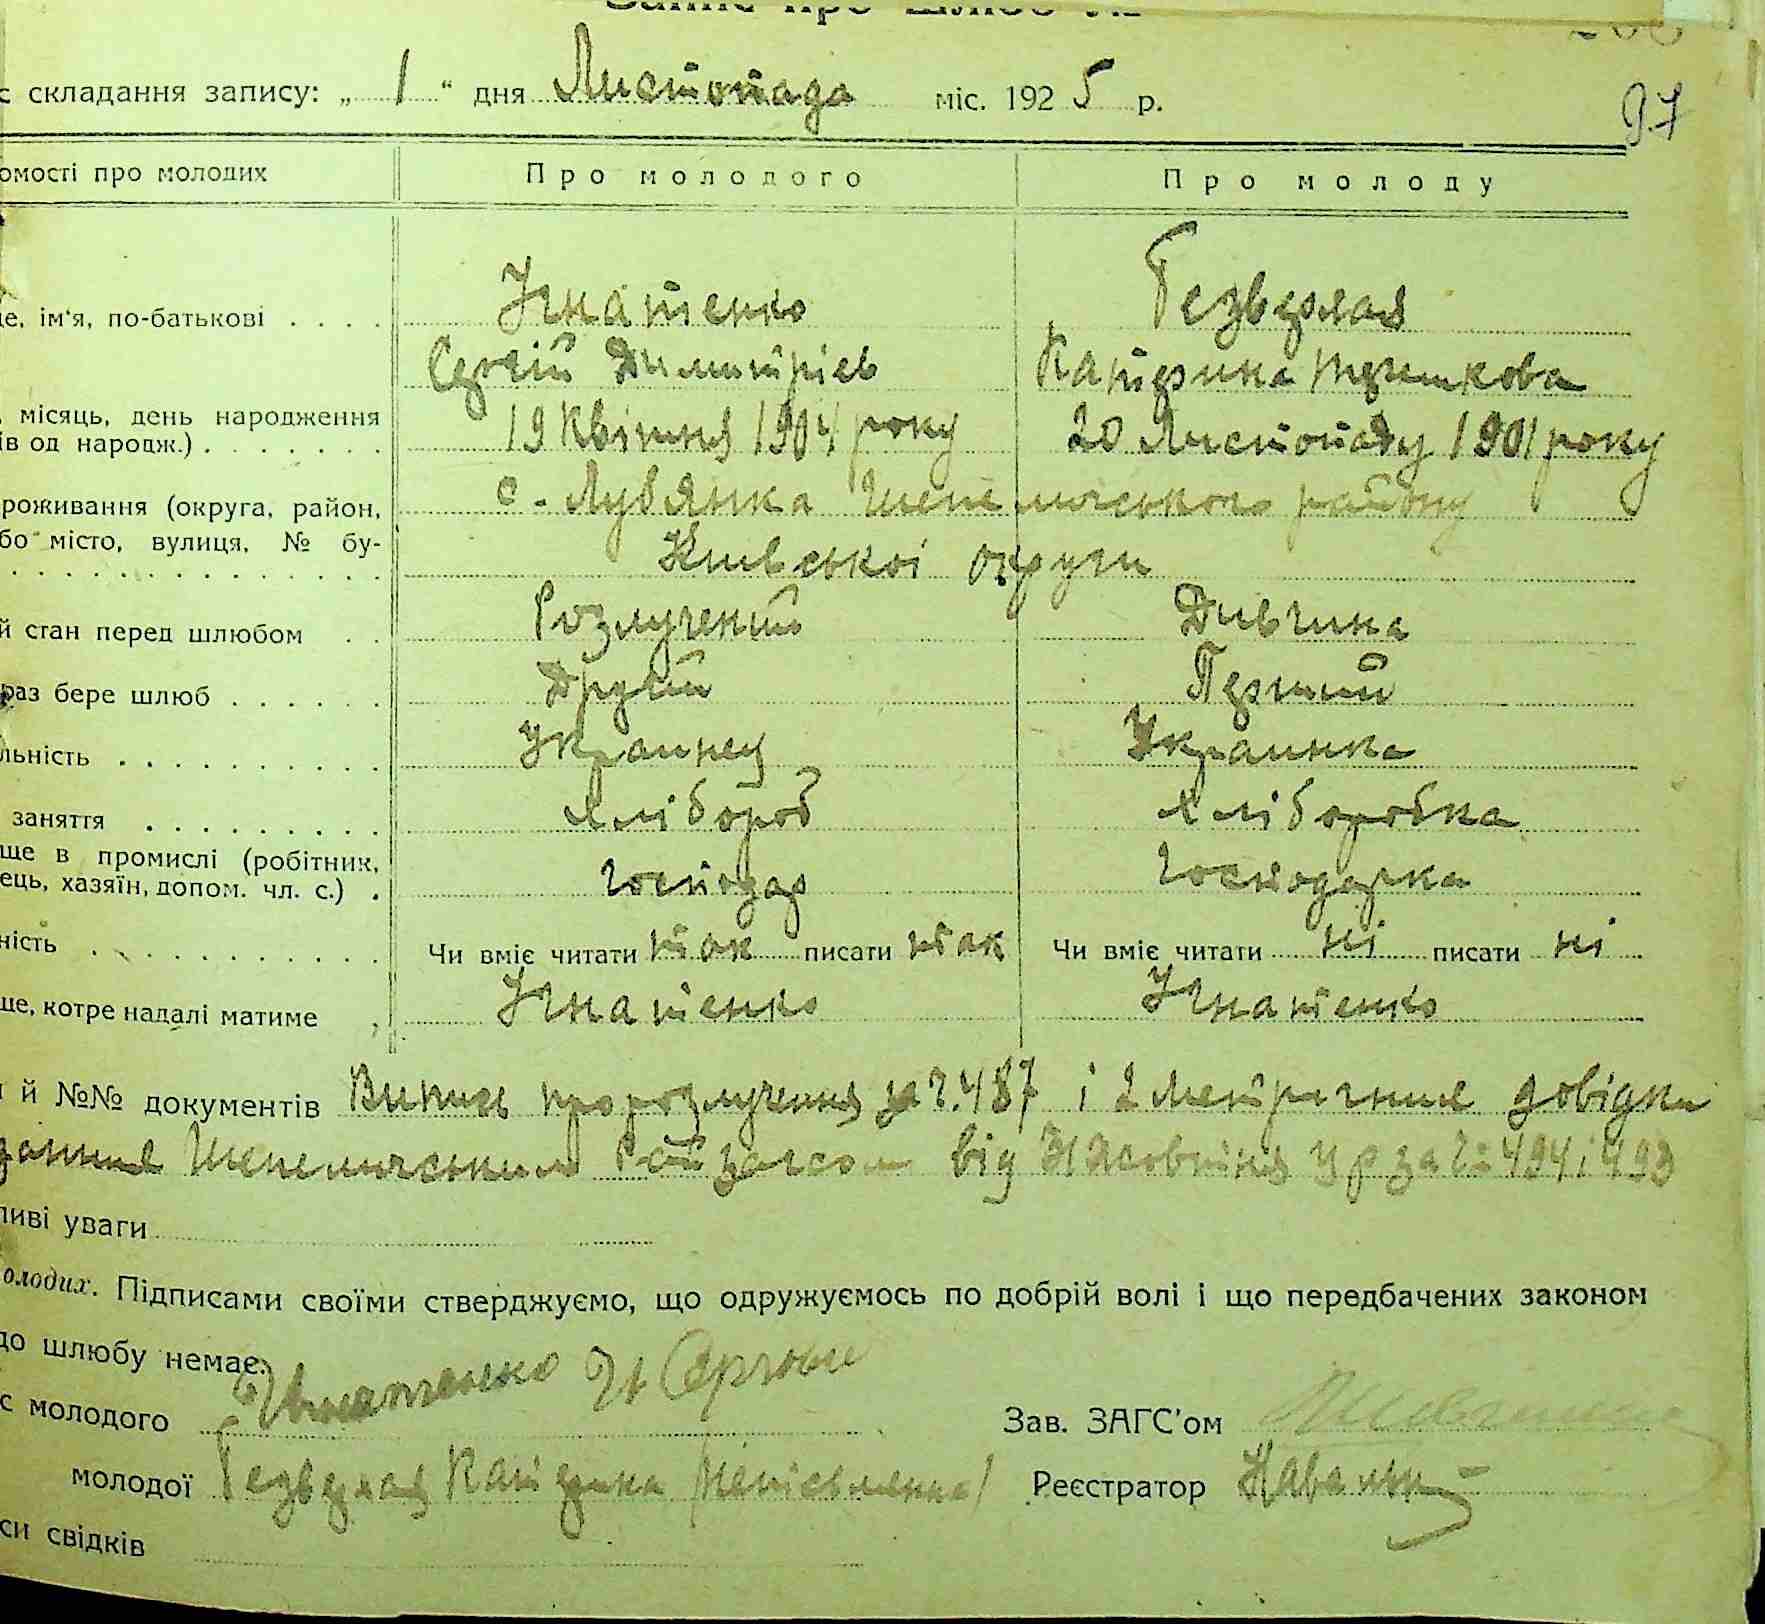 с складання запису: „ 1 “ дня Листопада міс. 192 5 р.
97
омості про молодих Про молодого Про молоду
Ігнатенко Безверхая
це, ім'я, по-батькові . . . .
Сергій Димитріев Катерина
місяць, день народження 19 Квітня 1904 року 20 Листопаду 1901 року
ів од народж.) . . . . . . .
с. Лубянка Шепелицського району
роживання (округа, район,
бо місто, вулиця, № бу- Київської округи
й стан перед шлюбом . . Розлучений Дивчина
раз бере шлюб . . . . . . Другій Перший
льність . . . . . . . . . . Украинец Украинка
заняття . . . . . . . . . Хлібороб Хлiборобка
ще в промислі (робітник, Господар Господарка
ець, хазяїн, допом. чл. с.) .
ність . . . . . . . . . . . Чи вміє читати так писати так Чи вміє читати ні писати ні
ще, котре надалі матиме Ігнатенко Ігнатенко
й №№ документів Випись про розлучення за ч. 487 і 2 Метричние довідки
данние Шепелицським Райзагсом від 31 Жовтня ц р за ч: 494 і 493
ливі уваги
олодих. Підписами своїми стверджуємо, що одружуємось по добрій волі і що передбачених законом
до шлюбу немає.
с молодого Ігнатенко Зав. ЗАГС'ом
молодої Безверхая Катерина Реєстратор
си свідків